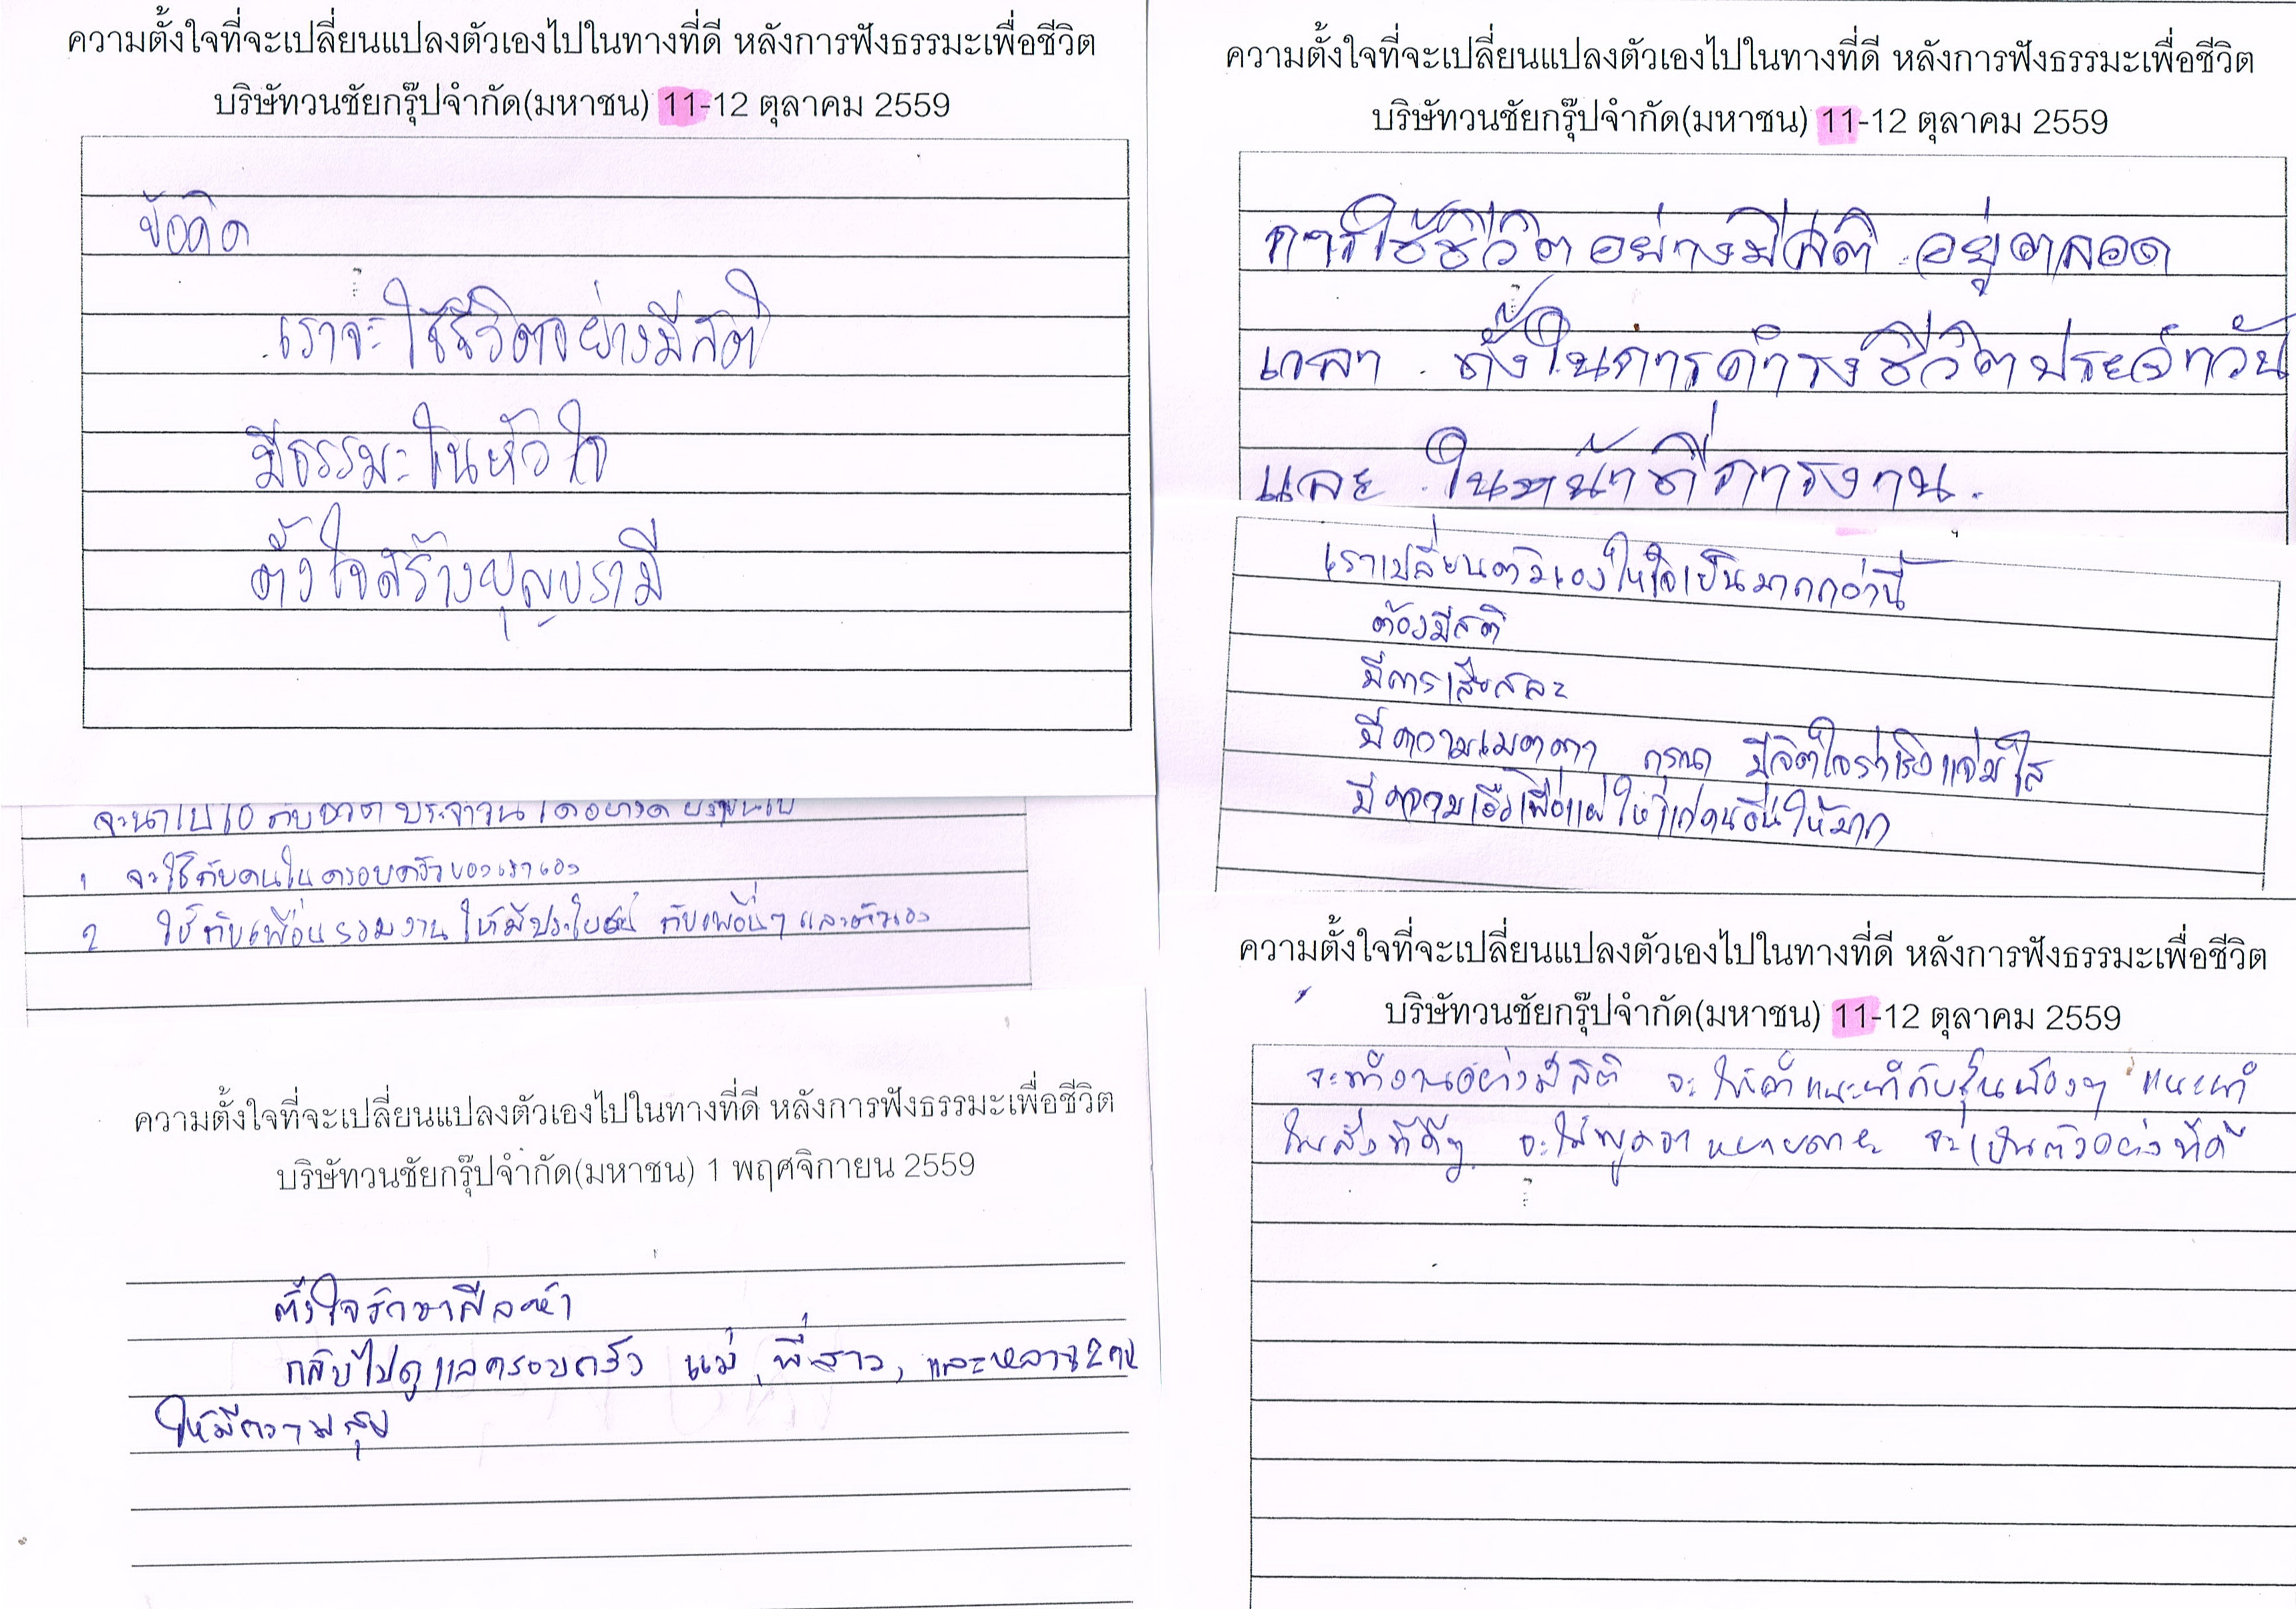 ความตั้งใจที่จะเปลี่ยนแปลงตัวเองไปในทางที่ดี หลังการฟังธรรมะเพื่อชีวิต
บริษัทวนชัยกรุ๊ปจำกัด(มหาชน) 11-12 ตุลาคม 2559
ข้อคิด
เราจะใช้ชีวิตอย่างมีสติ
มีธรรมะในหัวใจ
ตั้งใจสร้างบุญบารมี
จะนำไปใช้กับชีวิตประจำวันได้อย่างดียิ่งขึ้นไป
1 จะใช้กับคนในครอบครัวของเราเอง
2 ใช้กับเพื่อนร่วมงานให้มีประโยชน์ กับเพื่อนๆและตัวเอง
ความตั้งใจที่จะเปลี่ยนแปลงตัวเองไปในทางที่ดี หลังการฟังธรรมะเพื่อชีวิต
บริษัทวนชัยกรุ๊ปจำกัด(มหาชน) 1 พฤศจิกายน 2559
ตั้งใจรักษาศีลห้า
กลับไปดูแลครอบครัว แม่, พี่สาว, และหลาน 2 คน
ให้มีความสุข
ความตั้งใจที่จะเปลี่ยนแปลงตัวเองไปในทางที่ดี หลังการฟังธรรมะเพื่อชีวิต
บริษัทวนชัยกรุ๊ปจำกัด(มหาชน) 11-12 ตุลาคม 2559
การใช้ชีวิตอย่างมีสติ อยู่ตลอด
เวลา ทั้งในการดำรงชีวิตประจำวัน
และ ในหน้าที่การงาน.
เราเปลี่ยนตัวเองให้ใจเย็นมากกว่านี้
ต้องมีสติ
มีการเสียสละ
มีความเมตตา กรุณา มีจิตใจร่าเริงแจ่มใส
มีความเอื้อเฟื้อเผื่อแผ่ให้แก่คนอื่นให้มาก
ความตั้งใจที่จะเปลี่ยนแปลงตัวเองไปในทางที่ดี หลังการฟังธรรมะเพื่อชีวิต
บริษัทวนชัยกรุ๊ปจำกัด(มหาชน) 11-12 ตุลาคม 2559
จะทำงานอย่างมีสติ จะให้คำแนะนำกับรุ่นน้องๆ แนะนำ
ในสิ่งที่ดีๆ จะไม่พูดจาหยาบคาย จะเป็นตัวอย่างที่ดี